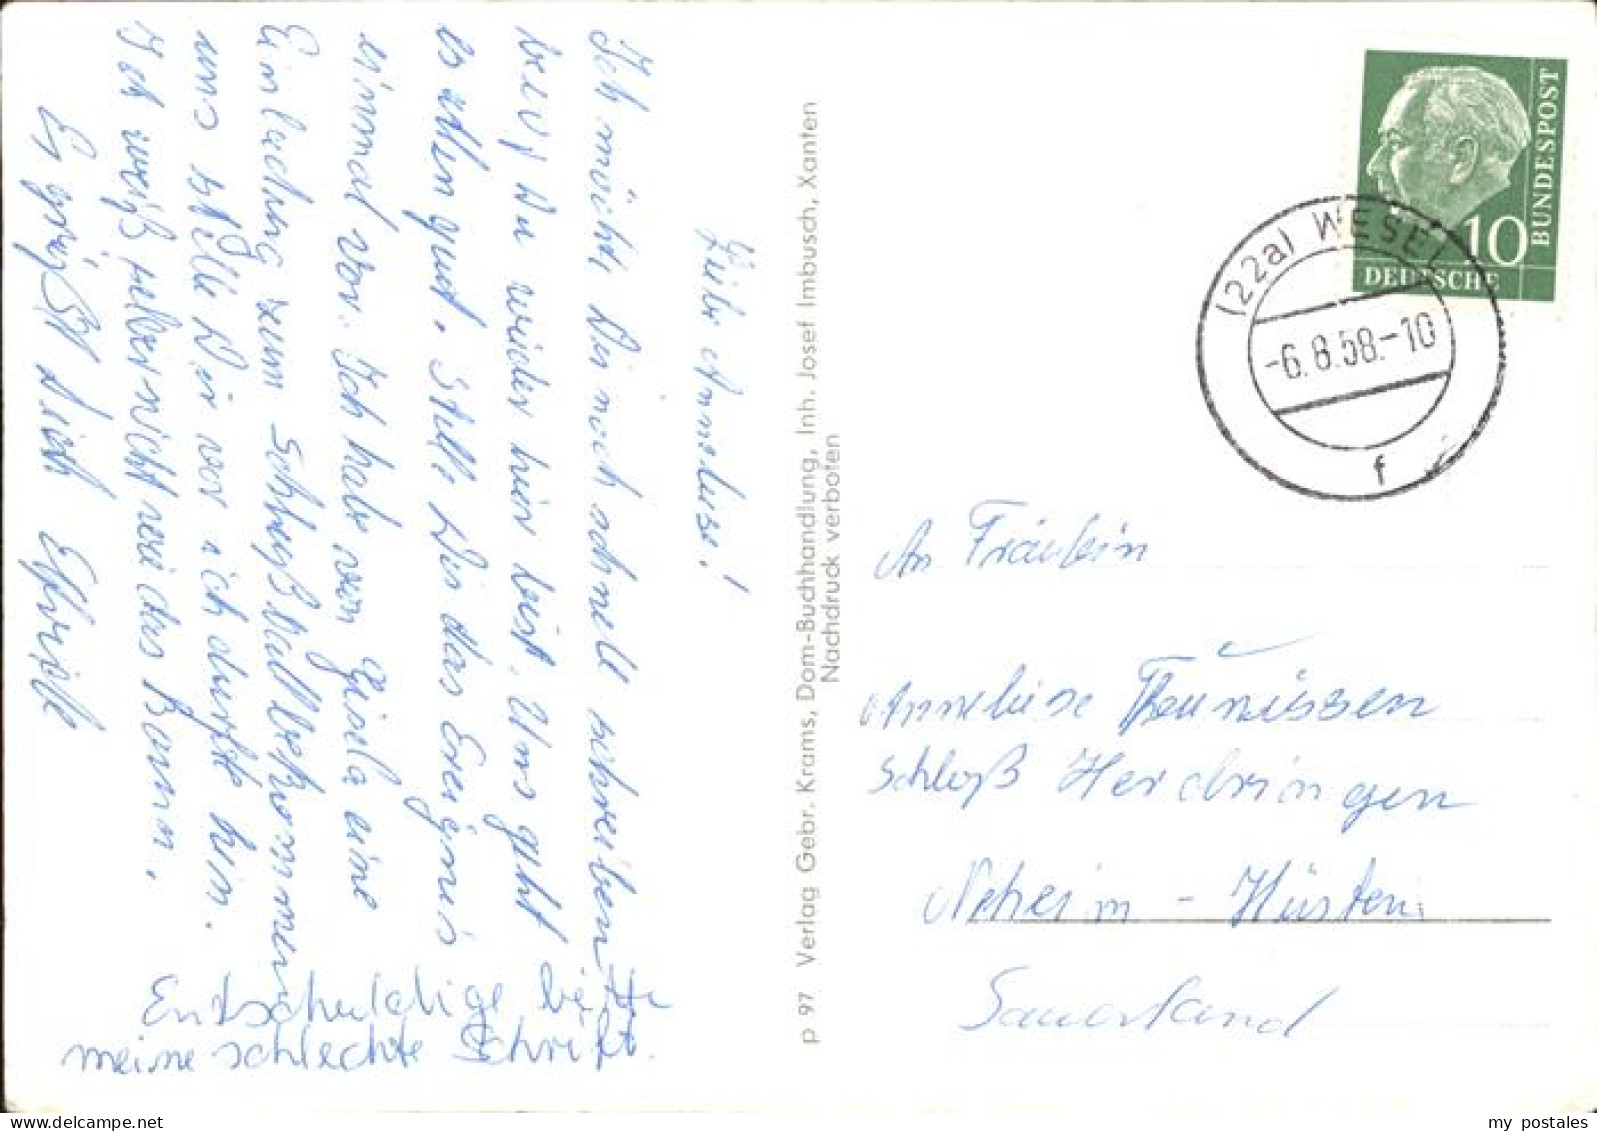 Liebe Anneliese!
Ich möchte Dir noch schnell schreiben
bevor Du wieder hier bist. Uns geht
es allen gut. Stelle Dir das Ereignis
einmal vor. Ich habe von Gisela eine
Einladung zum Schloßball bekommen
uns stelle Dir vor ich durfte hin.
Ich weiß selber nicht wie das kam.
Es grüßt Dich Elfriede
Entschuldige bitte
meine schlechte Schrift.
p 97 Verlag Gebr. Krams, Dom-Buchhandlung, Inh. Josef Imbusch, Xanten
Nachdruck verboten
10
DEUTSCHE
BUNDESPOST
(22a) WESEL
-6.8.58.-10
f
An Fräulein
Anneliese Theunissen
Schloß Herdringen
Neheim - Hüsten
Sauerland
my postales